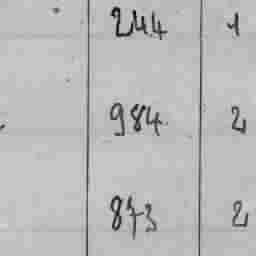 244 1
984 2
873 2